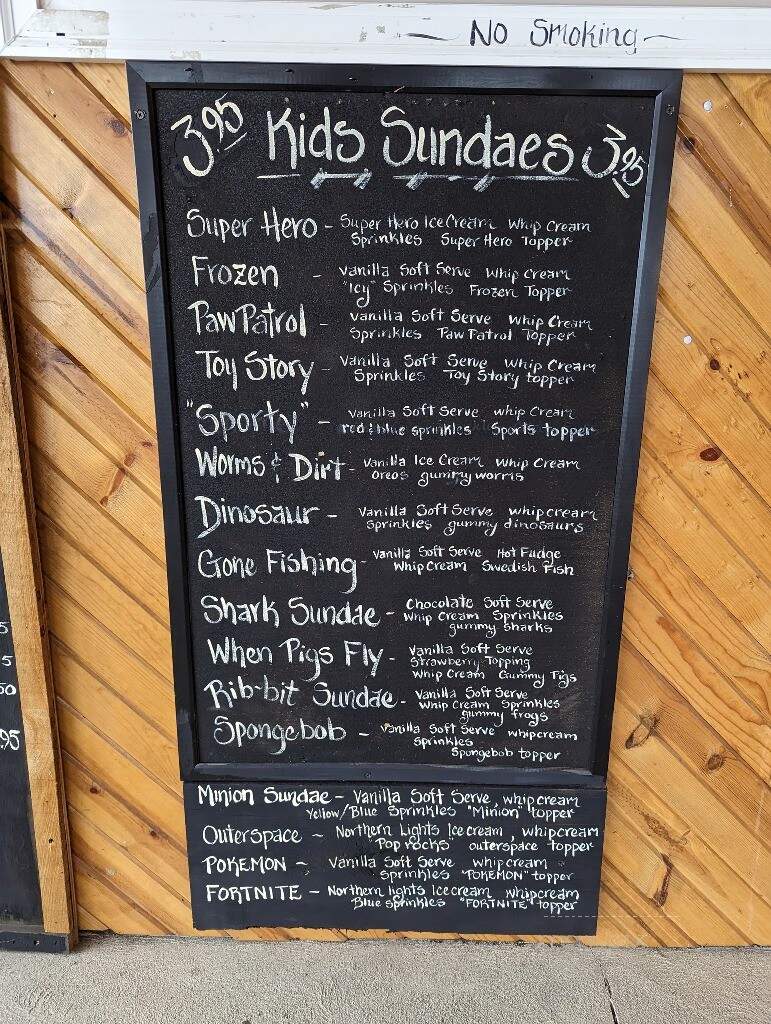 ~ No Smoking ~
3.95 Kids Sundaes 3.95
Super Hero - Super Hero Ice Cream Whip Cream
Sprinkles Super Hero Topper
Frozen - Vanilla Soft Serve Whip Cream
"Icy" Sprinkles Frozen Topper
Paw Patrol - Vanilla Soft Serve Whip Cream
Sprinkles Paw Patrol Topper
Toy Story - Vanilla Soft Serve Whip Cream
Sprinkles Toy Story topper
"Sporty" - Vanilla Soft Serve Whip Cream
red & blue sprinkles Sports topper
Worms & Dirt - Vanilla Ice Cream Whip Cream
oreos gummy worms
Dinosaur - Vanilla Soft Serve whipcream
Sprinkles gummy dinosaurs
Gone Fishing - Vanilla Soft Serve Hot Fudge
Whip Cream Swedish Fish
Shark Sundae - Chocolate Soft Serve
Whip Cream Sprinkles
gummy sharks
When Pigs Fly - Vanilla Soft Serve
Strawberry Topping
Whip Cream Gummy Pigs
Rib-bit Sundae - Vanilla Soft Serve
Whip Cream Sprinkles
gummy frogs
Spongebob - Vanilla Soft Serve whipcream
Sprinkles
Spongebob topper
Minion Sundae - Vanilla Soft Serve, whipcream
Yellow/Blue Sprinkles "Minion" topper
Outerspace ~ Northern Lights Ice cream, whipcream
"Pop rocks" outerspace topper
POKEMON ~ Vanilla Soft Serve whipcream
Sprinkles "POKEMON" topper
FORTNITE - Northern lights Ice cream whipcream
Blue sprinkles "FORTNITE" topper
5
5
50
.95